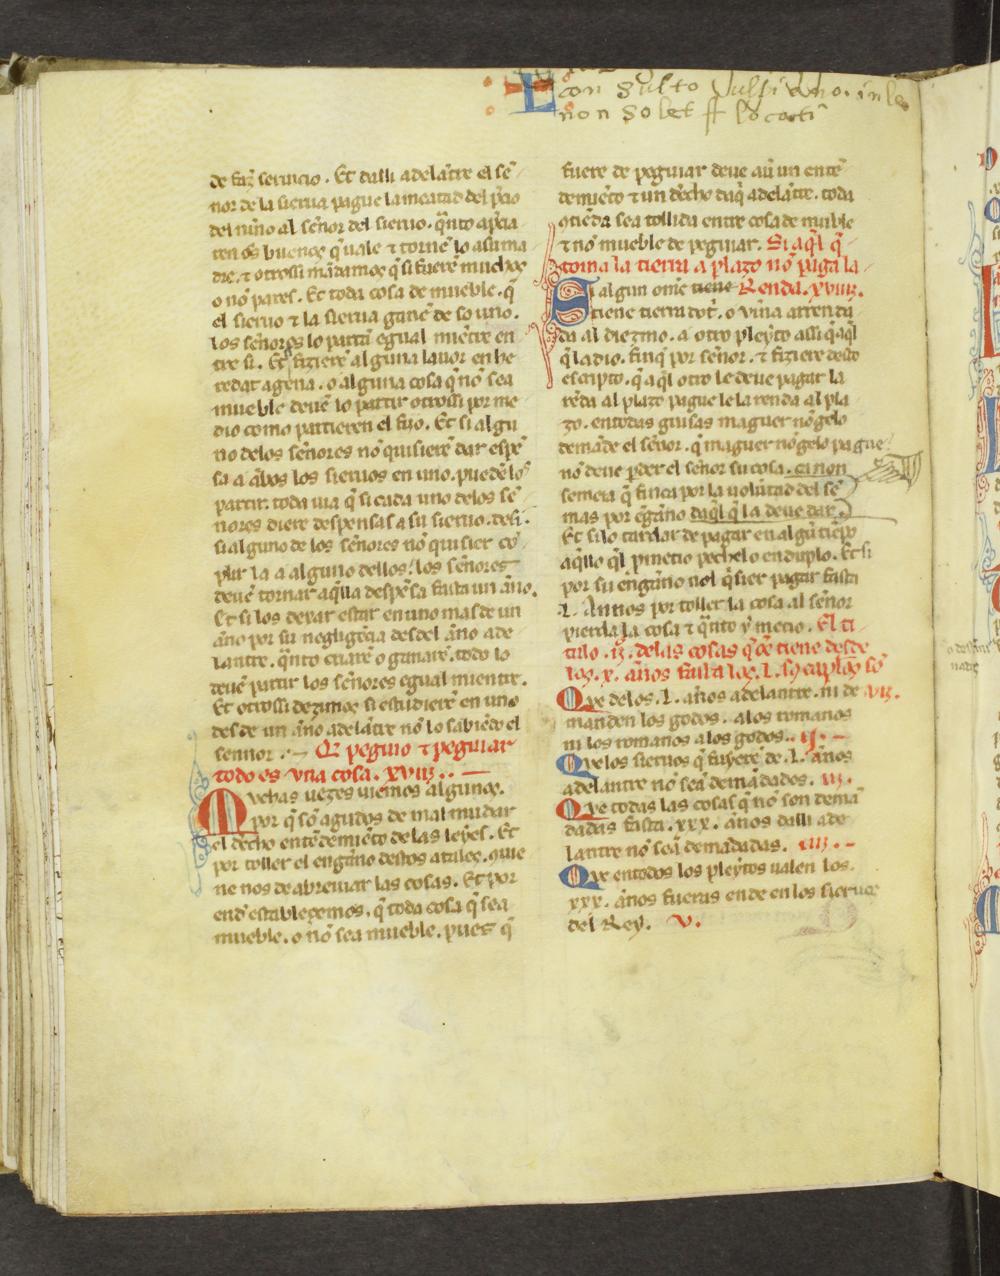 L
con sulto Vulpiano. in le
non solet ff locati
de faz seruicio. Et dalli adelãtre el se
nor de la sierua pague la meatad del p̃cio
del niño al señor del sieruo. q̃nto
ten õs buenos q̃ uale ⁊ torne lo a su ma
dre. ⁊ otrossi mãdamos q̃ si fuerẽ muchos
o nõ pares. Et toda cosa de mueble. q̃
el sieruo ⁊ la sierua ganẽ de so uno.
los señores lo partã egual miẽtre en
tre si. Et si fizierẽ alguna lauor en he
redat agena. o alguna cosa q̃ nõ sea
mueble deuẽ lo partir otrossi por me
dio como partieren el fijo. Et si algu
no delos señores nõ quisierẽ dar espẽ
sa a ãbos los sieruos en uno. puedẽ los
partir. toda uia q̃ si cada uno delos se
nores diere despensas a su sieruo. Et
si alguno de los señores nõ quisier cõ
plir la a alguno dellos. los señores
deuẽ tornar aq̃lla despẽsa fasta un año.
Et si los dexar estar en uno mas de un
año por su negligẽcia desdel año ade
lantre. q̃nto ouarẽ o ganarẽ. todo lo
deuẽ partir los señores egual mientre.
Et otrossi dezimos si estudierẽ en uno
des de un año adelãtre nõ lo sabiẽdo el
sennor. Q̃ pegiuo ⁊ pegiuar
todo es vna cosa. xviii.
Mvchas uezes uiemos algunos.
por q̃ sõ agudos de mal mudar
el d̃cho entẽdemiẽto de las leyes. Et
por toller el engãno destos atales. quie
ne nos de abreuiar las cosas. Et por
end establezemos. q̃ toda cosa q̃ sea
mueble. o nõ sea mueble. pues q̃
fuere de pegiuar deue auer un entẽ
demiẽto ⁊ un d̃cho daq̃ adelãtre. toda
cõtiẽda sea tollida entre cosa de muble
⁊ nõ mueble de pegiuar. Si aq̃l q̃
toma la tierra a plazo nõ paga la
Si algun ome tiene Renda. xviiii.
tiene tierra dotro. o viña arrenda
da al diezmo. a otro pleyto assi q̃ aq̃l
q̃ la dio. finq̃ por señor. ⁊ fiziere desto
escripto. q̃ aq̃l otro le deue pagar la
rẽda al plazo pague le la renda al pla
zo. en todas guisas maguer nõ gelo
demãde el señor. q̃ maguer nõ gelo pague
nõ deue p̃der el señor su cosa. ca non
semeia q̃ finca por la uolũtad del se
mas por ẽgãno daq̃l q̃ la deue dar.
Et si lo tardar de pagar en algũ tiẽpo
aq̃llo q̃l p̃metio pechelo en duplo. Et si
por su engãno nol q̃sier pagar fasta
L. Annos por toller la cosa al señor
pierda la cosa ⁊ q̃nto y metio. El ti
tulo. ii. delas cosas q̃ õe tiene desde
los. x. años fasta los. L. so caplos so
Qve delos. L. años adelantre. ni de vii.
manden los godos. a los romanos
ni los romanos a los godos. ii.
Qve los sieruos q̃ fuyerẽ de. L. años
adelantre nõ seã demãdados. iii.
Qve todas las cosas q̃ nõ son demã
dadas fasta. xxx. años dalli ade
lantre nõ seã demãdadas. iiii.
Qve en todos los pleytos ualen los.
xxx. años fueras ende en los sieruos
del Rey. V.